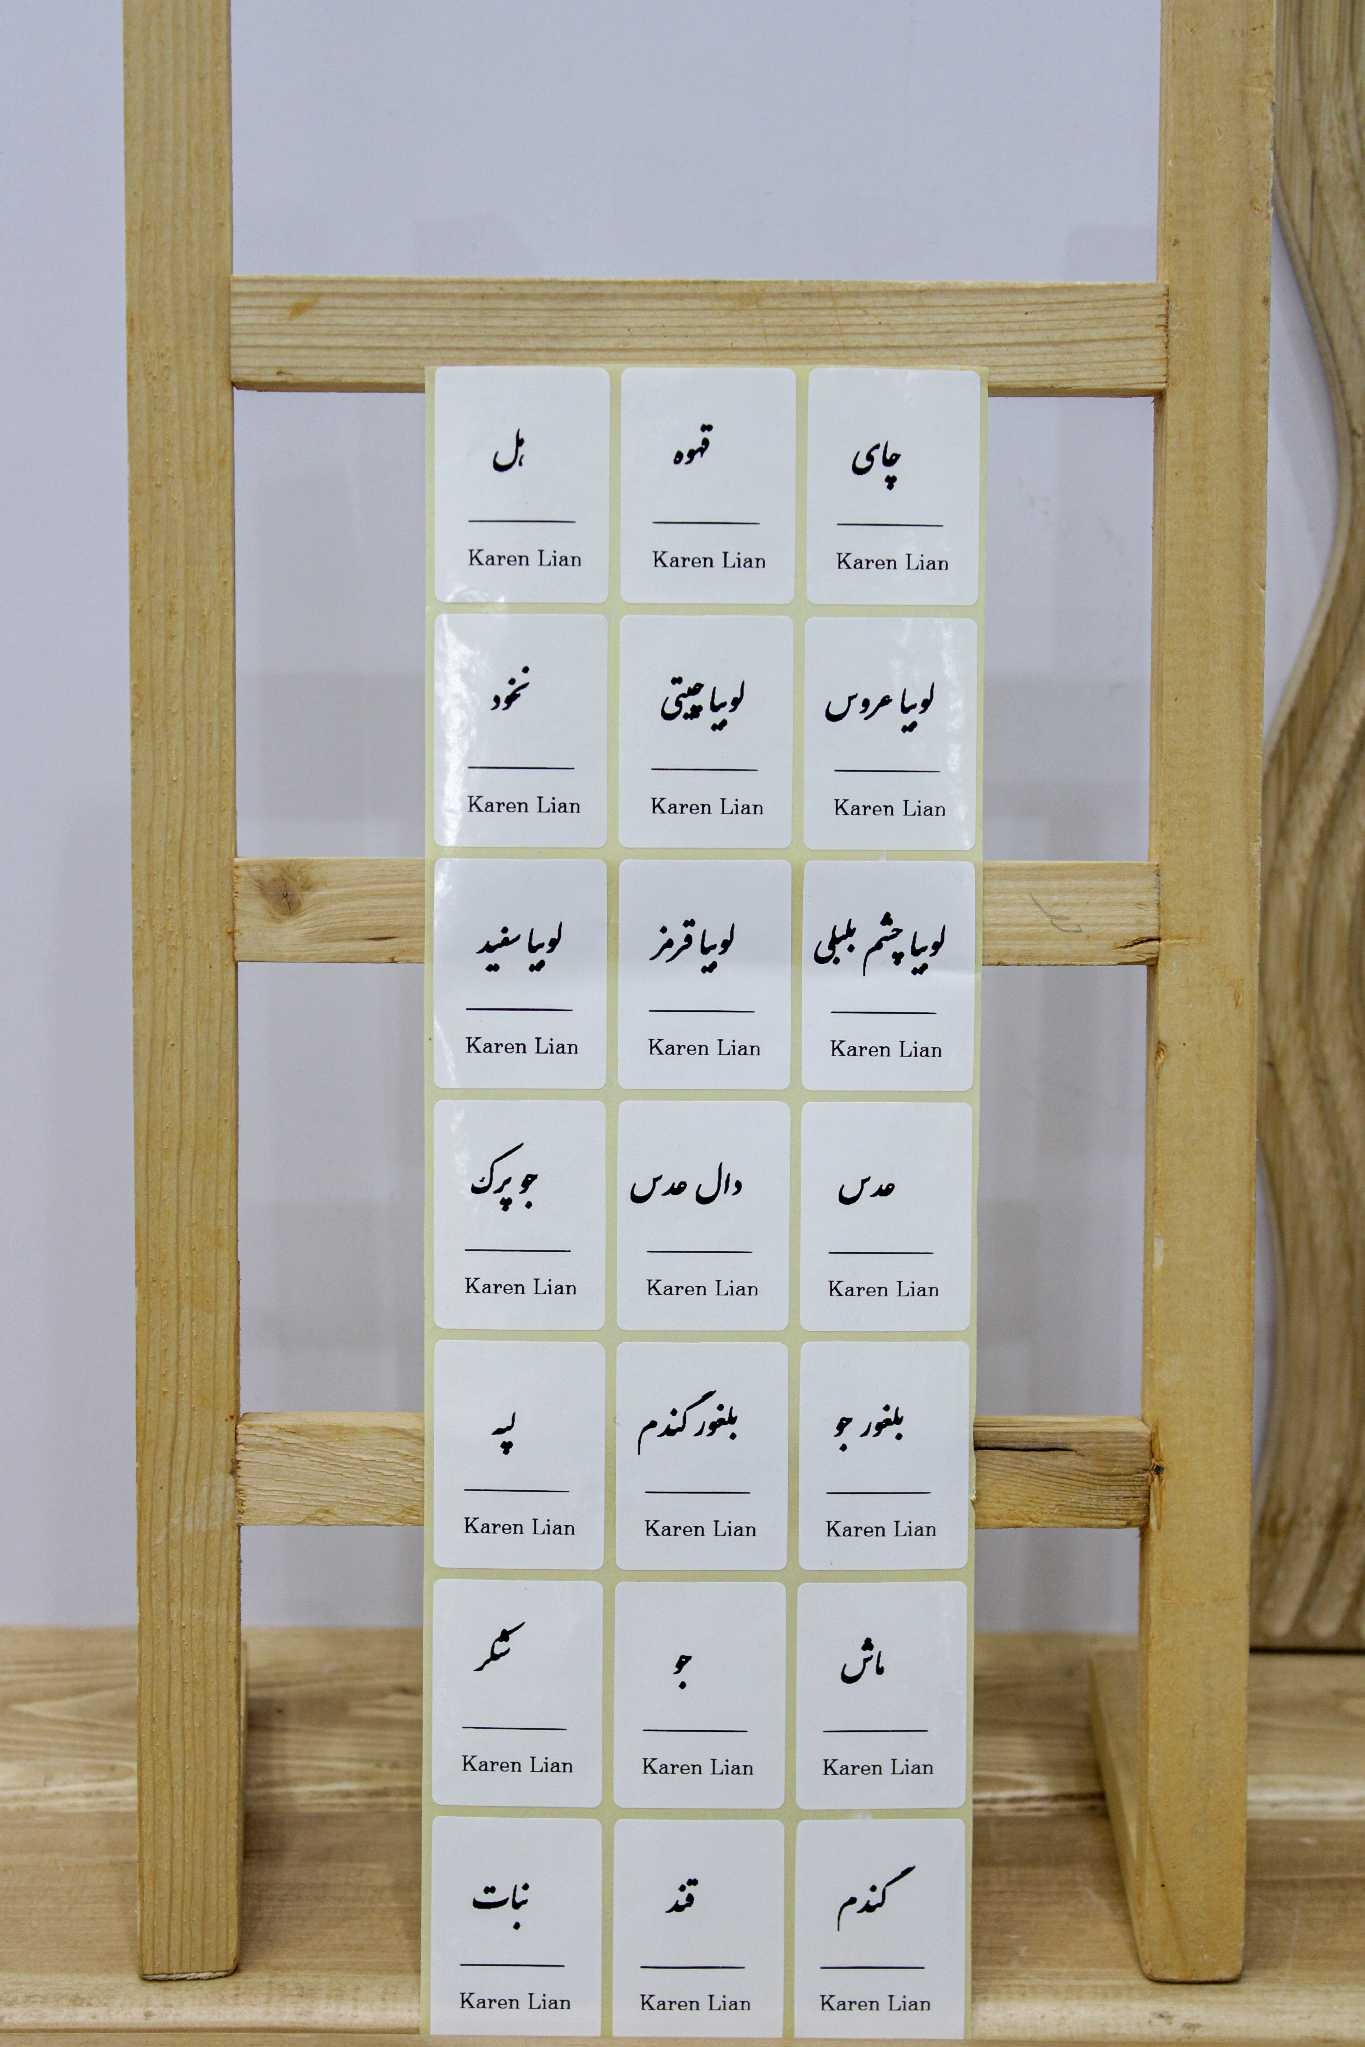 چای
Karen Lian
قهوه
Karen Lian
هل
Karen Lian
لوبیا عروس
Karen Lian
لوبیا چیتی
Karen Lian
نخود
Karen Lian
لوبیا چشم بلبلی
Karen Lian
لوبیا قرمز
Karen Lian
لوبیا سفید
Karen Lian
عدس
Karen Lian
دال عدس
Karen Lian
جو پرک
Karen Lian
بلغور جو
Karen Lian
بلغور گندم
Karen Lian
لپه
Karen Lian
ماش
Karen Lian
جو
Karen Lian
شکر
Karen Lian
گندم
Karen Lian
قند
Karen Lian
نبات
Karen Lian